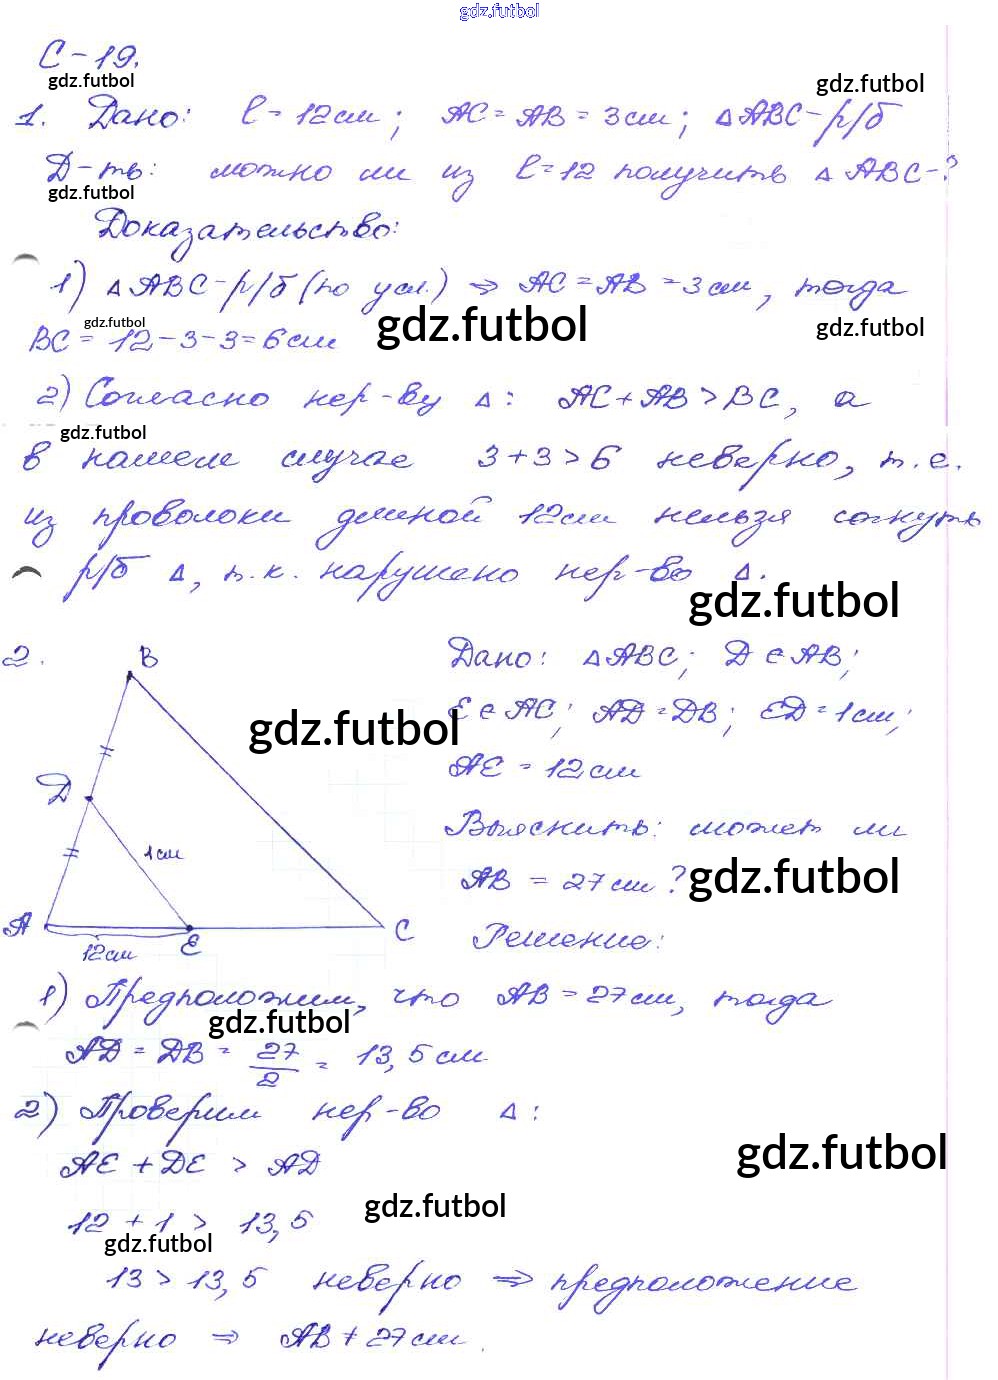 gdz.futbol
С-19.
gdz.futbol
gdz.futbol
1. Дано: l = 12 см; АС = АВ = 3 см; △ АВС - р/б
Д-ть: можно ли из l = 12 получить △ АВС - ?
gdz.futbol
Доказательство:
1) △ АВС - р/б (по усл.) ⇒ АС = АВ = 3 см, тогда
gdz.futbol
gdz.futbol
gdz.futbol
ВС = 12 - 3 - 3 = 6 см
2) Согласно нер-ву △: АС + АВ > ВС, а
gdz.futbol
в нашем случае 3 + 3 > 6 неверно, т.е.
из проволоки длиной 12 см нельзя согнуть
р/б △, т.к. нарушено нер-во △.
gdz.futbol
2.
В
Д
А
Е
С
1 см
12 см
gdz.futbol
Дано: △ АВС; Д ∈ АВ;
Е ∈ АС; АД = ДВ; ЕД = 1 см;
АЕ = 12 см
Выяснить: может ли
АВ = 27 см ?
gdz.futbol
Решение:
1) Предположим, что АВ = 27 см, тогда
gdz.futbol
АД = ДВ = 27/2 = 13,5 см
2) Проверим нер-во △:
АЕ + ДЕ > АД
gdz.futbol
12 + 1 > 13,5
gdz.futbol
gdz.futbol
13 > 13,5 неверно ⇒ предположение
неверно ⇒ АВ ≠ 27 см.